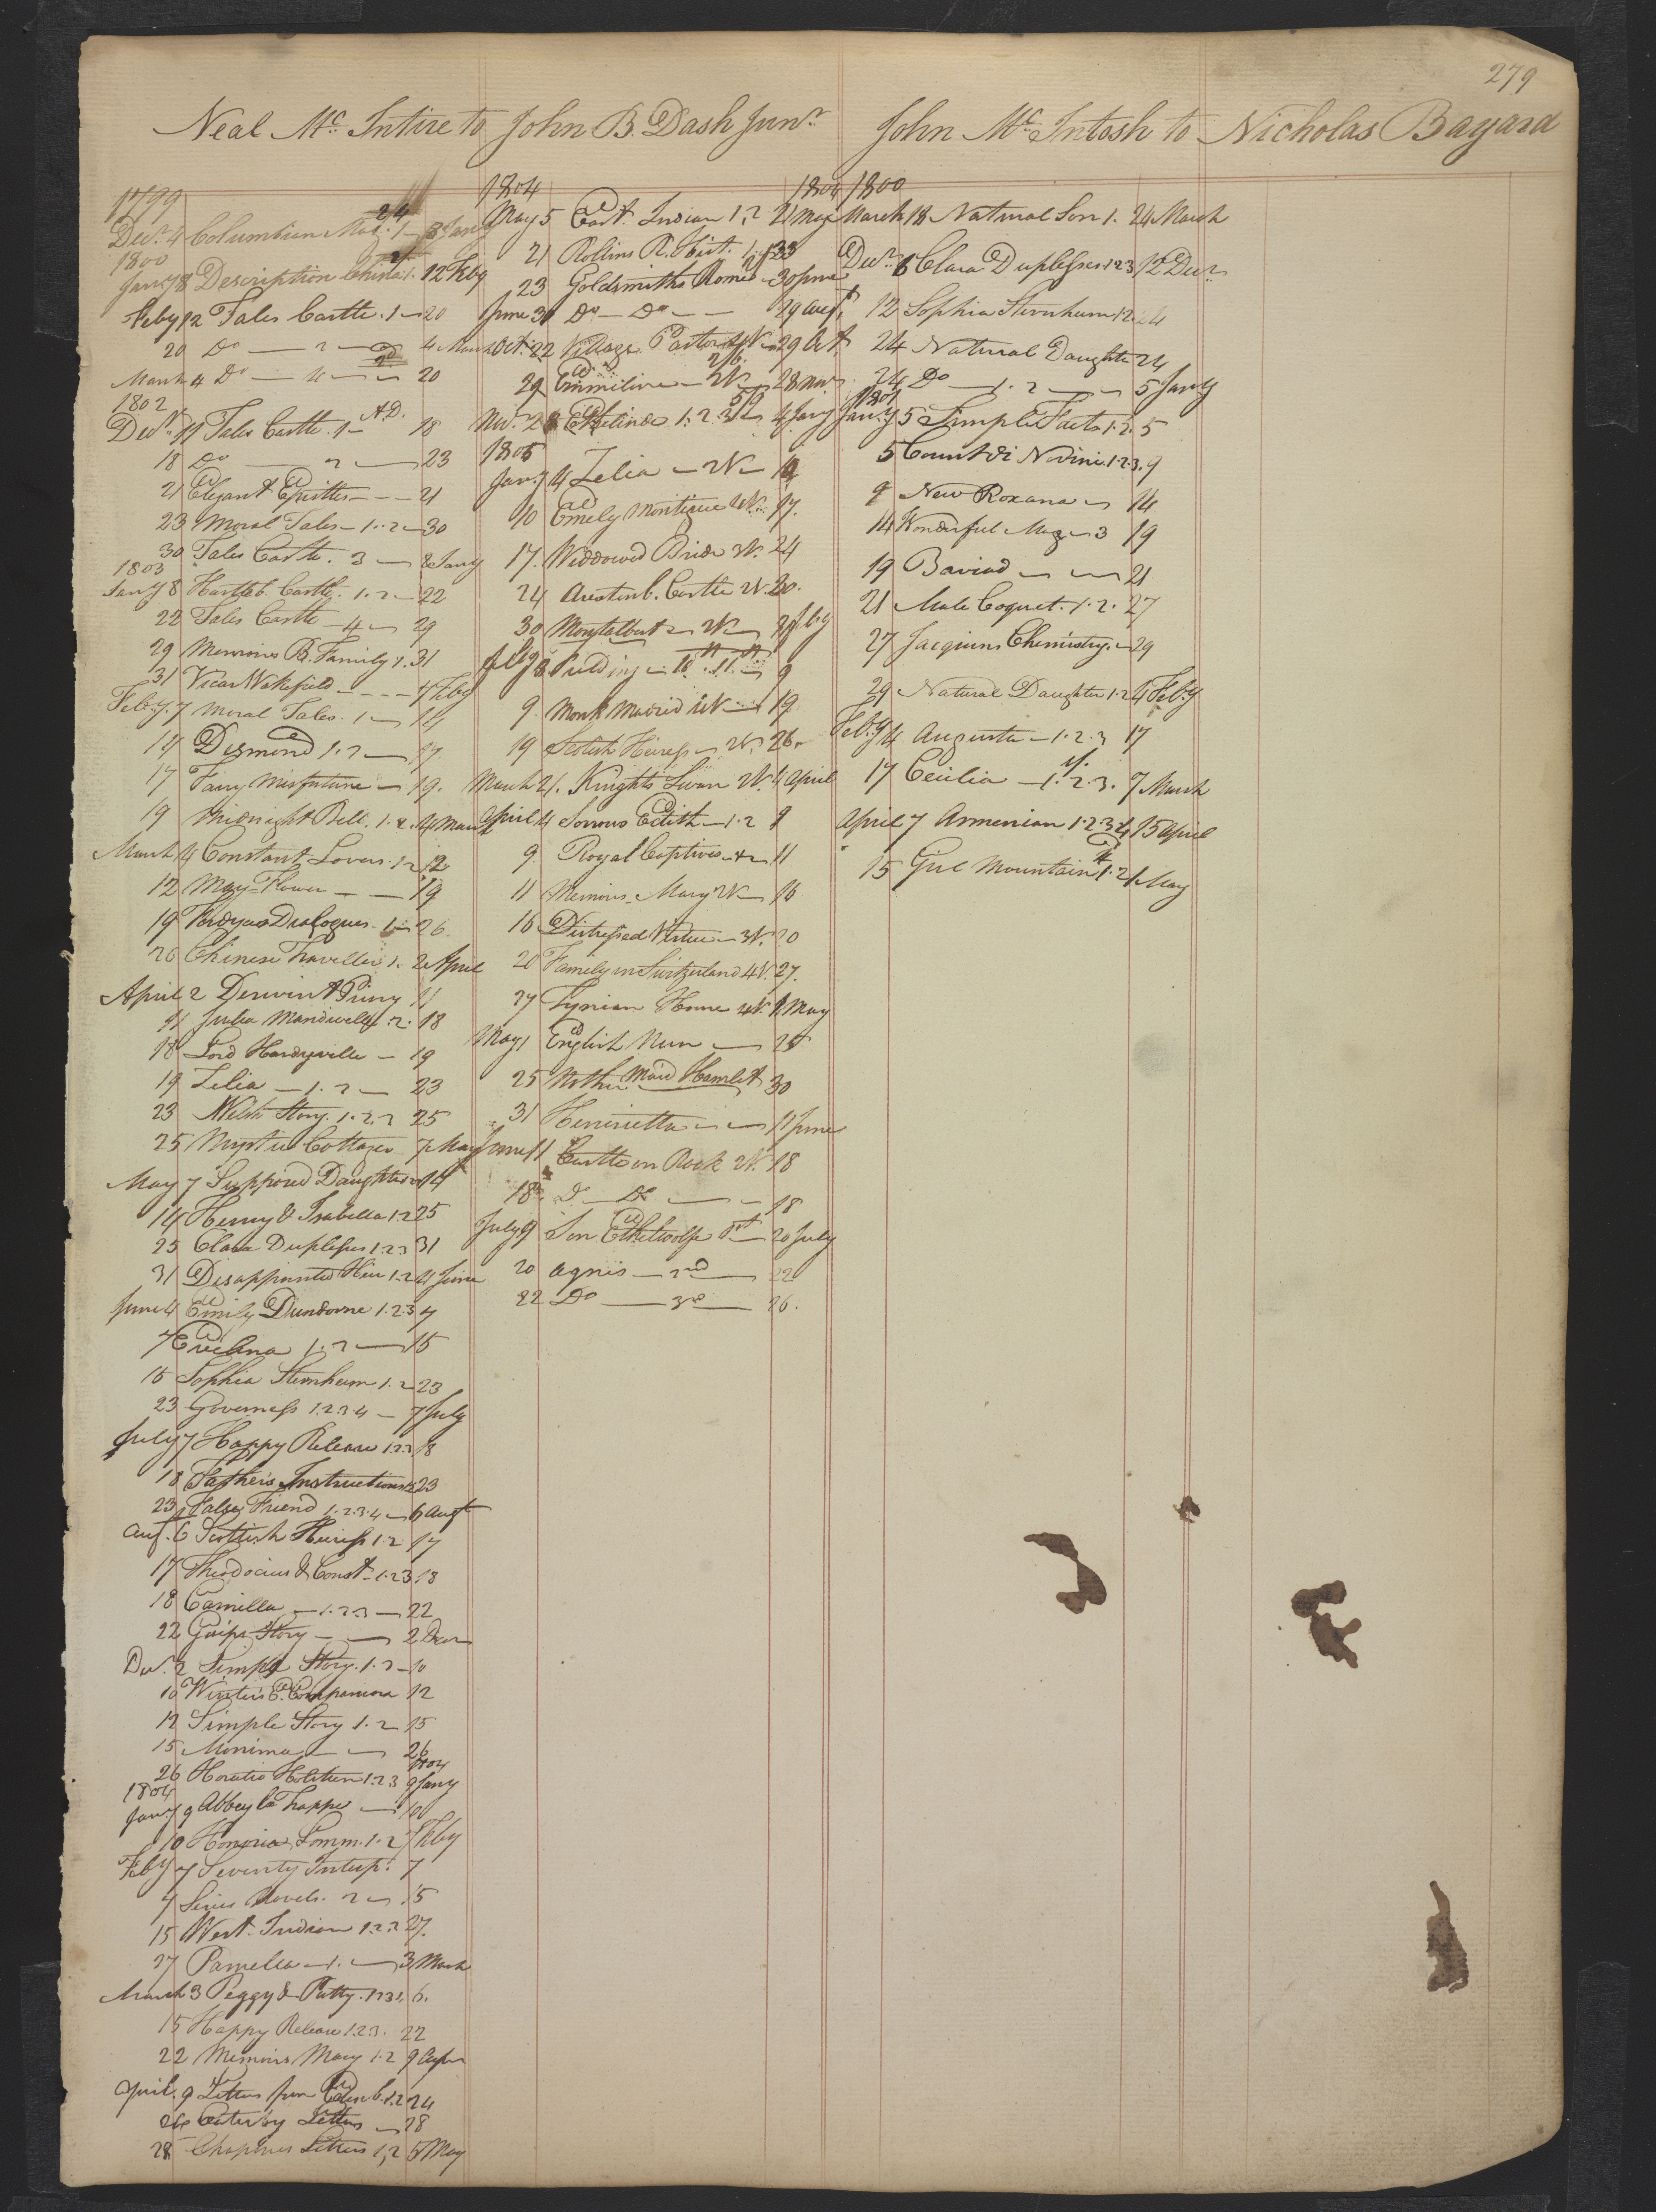 279
Neal Mc Intire to John B. Dash Junr
John Mc Intosh to Nicholas Bayard
1799
2/4
Decr 4 Columbian Mag. 1 — 8 Jany
1800
Jany 8 Description Chisle 1. 12 Feby
Feby 12 Tales Castle . 1 — 20
20 Do — 2 — 4 March
March 4 Do — 4 — 20
1802
Decr 11 Tales Castle . 1 — AD. 18
18 Do — 2 — 23
21 Elegant Epistles — — — 21
23 Moral Tales — 1 . 2 — 30
30 Tales Castle . 3 — 8 Jany
1803
Jany 8 Hartleb. Castle . 1 . 2 — 22
22 Tales Castle — 4 — 29
29 Memoirs B. Family 1 . 31
31 Vicar Wakefield — — — 7 Feby
Feby. 7 Moral Tales . 1 — 14
14 Desmond 1 . 2 — 17
17 Fairy Misfortune — 19.
19 Midnight Bell . 1 . 2 . 4 March
March 4 Constant Lover . 1 . 2 12
12 May-Flower — — 19
19 Fordyces Dialogues . 1 — 26
26 Chinese Traveller 1 . 2 April
April 2 Derwint Priory 11
11 Julia Mandeville . 2 . 18
18 Lord Hardyville — 19
19 Zelia — 1 . 2 — 23
23 Welsh Story . 1 . 2 . 3 25
25 Mystic Cottager 7 May
May 7 Supposed Daughter 14
14 Henry & Isabella 1 . 2 25
25 Clara Duplessis 1 . 2 3 31
31 Disappointed Heir 1 . 2 4 June
June 4 Emily Dundorne 1 . 2 . 3 7
7 Evelina 1 . 2 — 15
15 Sophia Sternheim 1 . 2 23
23 Governess 1 . 2 . 3 . 4 — 7 July
July 7 Happy Release 1 2 3 18
18 Fathers Instructions 1 2 3 23
23 False Friend 1 . 2 . 3 . 4 — 6 Augt
Aug. 6 Scottish Heiress 1 . 2 17
17 Theodocius & Const. 1 . 2 3 18
18 Camilla — 1 . 2 . 3 — 22
22 Gosips Story — — 2 Decr
Decr. 2 Simple Story . 1 . 2 — 10
10 Winters E. Companion 12
12 Simple Story 1 . 2 — 15
15 Monima — — 26
1804
26 Horatio Holstien 1 . 2 3 9 Jany
1804
Jany 9 Abbey la Trappe — 10
10 Honoria Somm . 1 . 2 7 Feby
Feby 7 Seventy Intrept. 7
7 Series Novels . 2 — 15
15 West Indian 1 2 3 27.
27 Pamella — 1 . — 3 March
March 3 Peggy & Patty . 1 2 3 4 6.
15 Happy Release 1 . 2 . 3 . 22
22 Memoirs Mary 1 . 2 9 Apr
April . 9 Letters from Edinb. 1 . 2 24
24 Canterby Letters — 28
28 Chapones Letters 1,2 5 May
1804 1804
May 5 East Indian 1, 2 21 May
21 Rollins R. Hist. 1 23
23 Goldsmiths Rome — 30 June
June 30 Do — Do — — 29 Augt
Oct. 22 Village Pastor 2V — 29 Oct
29 Emmiline — 2V — 28 Novr
Nov. 28 Ethelinde 1 . 2 . 3 4 Jany
1805
Jany 4 Zelia — 2V — 10
10 Emely Montigue 2V. 17.
17. Widdowed Bride 3V. 24
24 Austenb. Castle 2V. 30.
30 Montalbert — 2V — 8 Feby
Feby 8 Feilding — 10 . 11 . — 9
9 Monk Madrid 2V — 19
19 Scotish Heiress — 2V. 26.
March 21. Knights Swan 2V. 4 April
April 4 Sorrows Edith — 1 . 2 9
9 Royal Captives — 4 — 11
11 Memoirs Mary 2V — 16
16 Distressed Virtue — 3V. 20
20 Family in Switzerland 4V. 27.
27 Tynian Home 2V. 1 May
May 1 English Nun — 25
25 Mother Maid Hamlet 30
31 Henrietta — — 11 June
June 11 Castle on Rock 2V. 18
18 Do — Do — — 18
July 9 Son Ethelwolfe 1st — 20 July
20 Agnes — 2nd — 22
22 Do — 3d — 26.
1800
March 18 Natural Son 1 . 24 March
Decr 6 Clara Duplessis 1 2 3 12 Decr
12 Sophia Sternheim 1 2 . 24
24 Natural Daughter 24
24 Do — 1 . 2 — 5 Jany
1801
Jany 5 Simple Facts 1 . 2 5
5 Count di Novini 1 . 2 . 3 . 9
9 New Roxana — 14
14 Wonderful Mag — 3 19
19 Baviad — — 21
21 Male Coquet . 1 . 2 . 27
27 Jacquins Chemistry. — 29
29 Natural Daughter 1 . 2 4 Feby
Feby 4 Augusta — 1 . 2 . 3 17
17 Cecilia — 1 . 2 . 3 . 7 March
April 7 Armenian 1 . 2 . 3 . 4 15 April
15 Girl Mountain 1 . 2 1 May